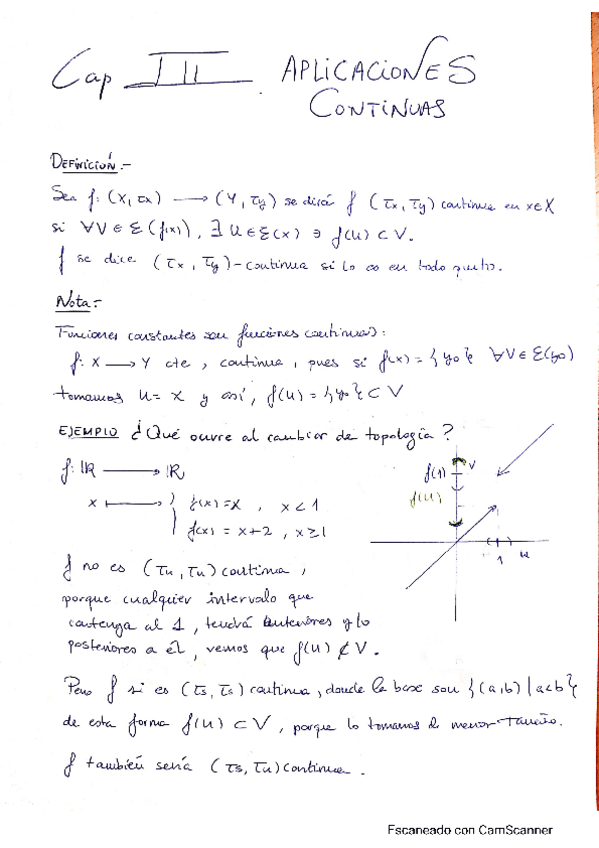 Cap III. APLICACIONES
CONTINUAS
DEFINICIÓN.-
Sea f: (X, τx) ⟶ (Y, τy) se dirá f (τx, τy) continua en x∈X
si ∀V ∈ Ɛ(f(x)), ∃ U∈Ɛ(x) ∋ f(U) ⊂ V.
f se dice (τx, τy)-continua si lo es en todo punto.
Nota:-
Funciones constantes son funciones continuas:
f: X ⟶ Y cte, continua, pues si f(x) = {y0} ∀V∈Ɛ(y0)
tomamos U = X y así, f(U) = {y0} ⊂ V
EJEMPLO ¿Qué ocurre al cambiar de topología?
f: ℝ ⟶ ℝ
x ⟼ { f(x) = x , x < 1
f(x) = x+2 , x ≥ 1
f(1) V
f(U)
1 U
f no es (τu, τu) continua,
porque cualquier intervalo que
contenga al 1, tendrá anteriores y lo
posteriores a él, vemos que f(U) ⊄ V.
Pero f si es (τs, τs) continua, donde la base son {(a,b) | a<b}
de esta forma f(U) ⊂ V, porque lo tomamos d menor tamaño.
f también sería (τs, τu) continua.
Escaneado con CamScanner